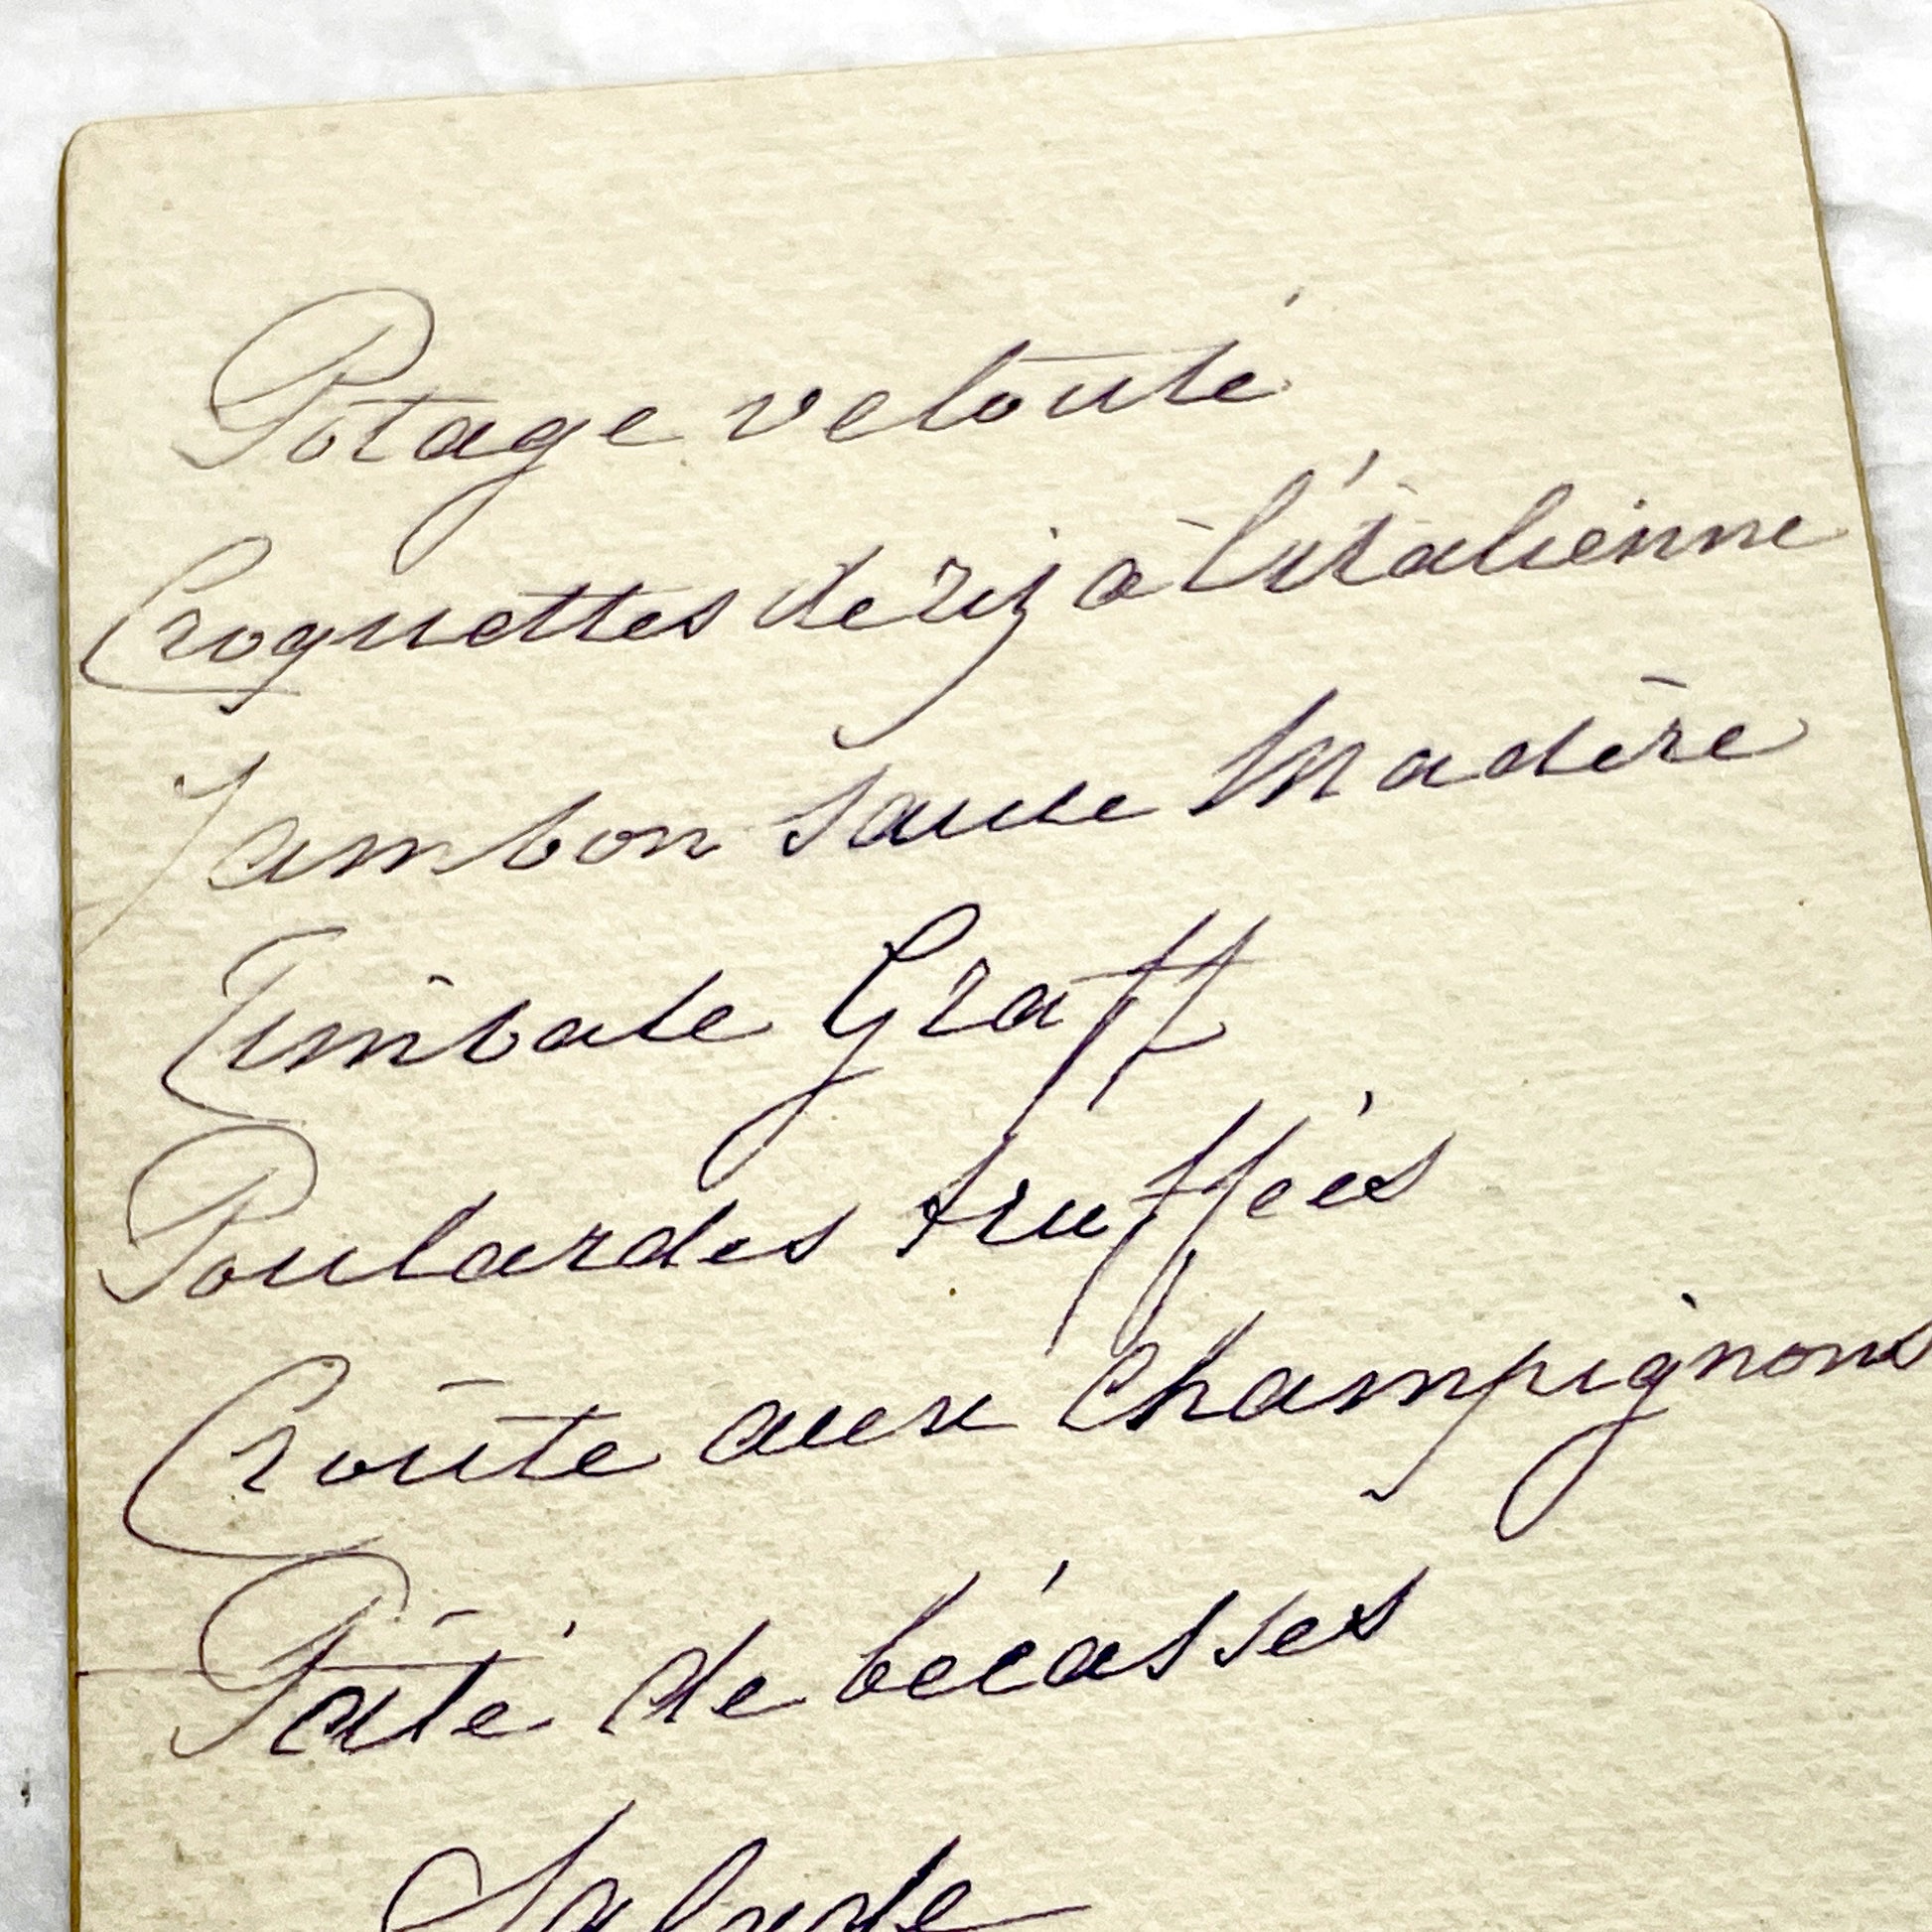 Potage velouté
Croquettes de riz à l'italienne
Jambon sauce Madère
Timbale Graff
Poulardes truffées
Croûte aux Champignons
Pâté de bécasses
Salade